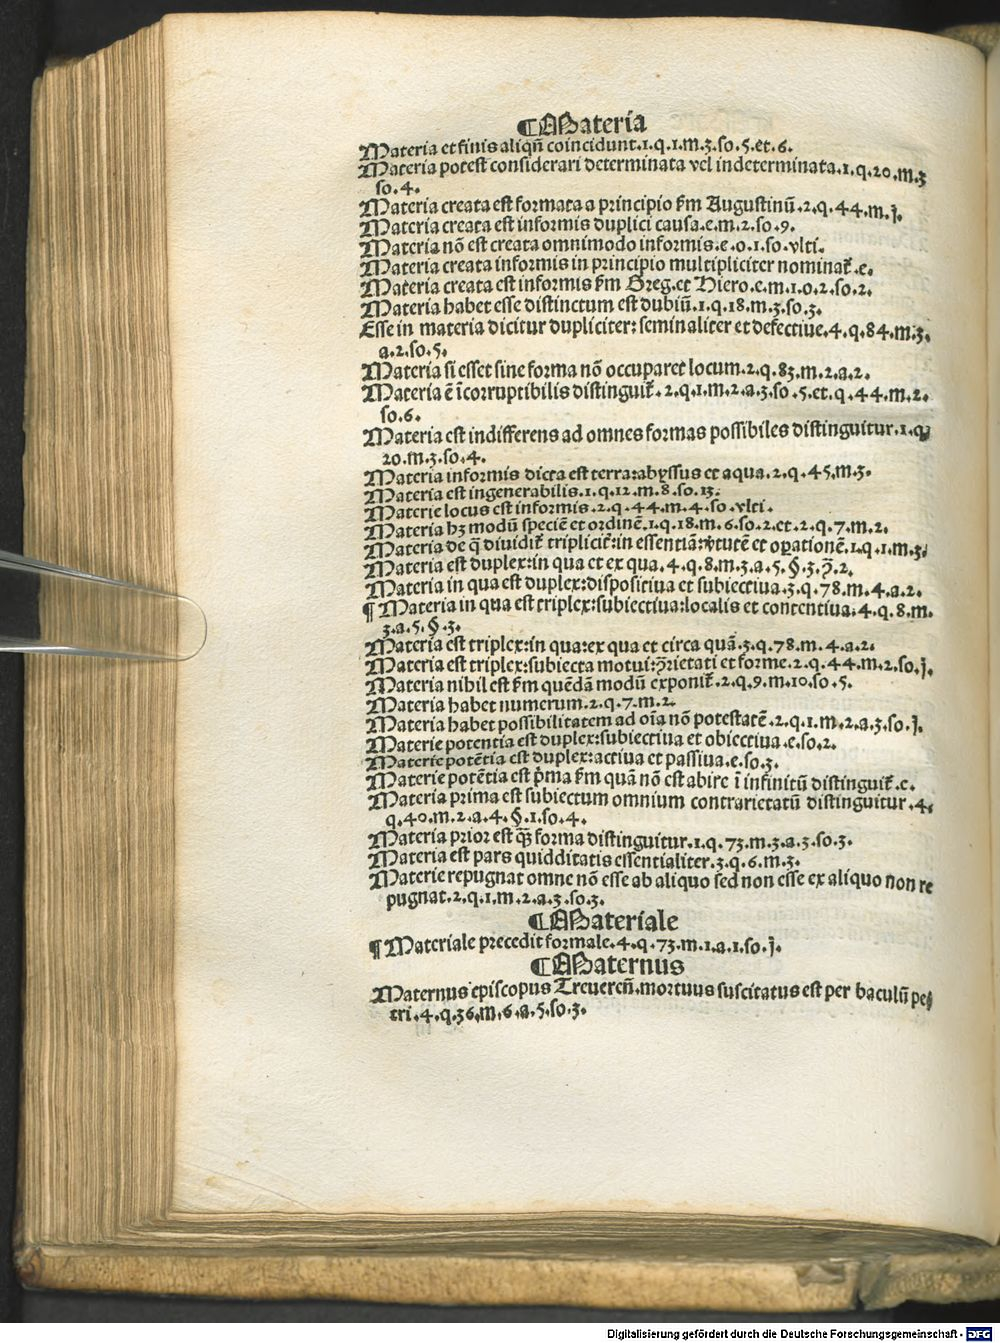 ¶Materia
Materia et finis aliqn̄ coincidunt.1.q.1.m.3.so.5.et.6.
Materia potest considerari determinata vel indeterminata.1.q.20.m.3
so.4.
Materia creata est formata a principio ẜm Augustinū.2.q.44.m.j.
Materia creata est informis duplici causa.e.m.2.so.9.
Materia nō est creata omnimodo informis.e.o.1.so.vlti.
Materia creata informis in principio multipliciter nominat᷑.e.
Materia creata est informis ẜm Greg.et Hiero.e.m.1.o.2.so.2.
Materia habet esse distinctum est dubiū.1.q.18.m.3.so.3.
Esse in materia dicitur dupliciter: seminaliter et defectiue.4.q.84.m.3.
a.2.so.5.
Materia si esset sine forma nō occuparet locum.2.q.83.m.2.a.2.
Materia ē īcorruptibilis distinguit᷑.2.q.1.m.2.a.3.so.5.et.q.44.m.2.
so.6.
Materia est indifferens ad omnes formas possibiles distinguitur.1.q.
20.m.3.so.4.
Materia informis dicta est terra:abyssus et aqua.2.q.45.m.3.
Materia est ingenerabilis.1.q.12.m.8.so.13.
Materie locus est informis.2.q.44.m.4.so.vlti.
Materia hꝫ modū speciē et ordinē.1.q.18.m.6.so.2.et.2.q.7.m.2.
Materia de q̄ diuidit᷑ triplicit᷑:in essentiā:v̓tutē et oꝑationē.1.q.1.m.3.
Materia est duplex:in qua et ex qua.4.q.8.m.3.a.5.§.3.ꝯ̄.2.
Materia in qua est duplex:dispositiua et subiectiua.3.q.78.m.4.a.2.
¶ Materia in qua est triplex:subiectiua:localis et contentiua.4.q.8.m.
3.a.5.§.3.
Materia est triplex:in qua:ex qua et circa quā.3.q.78.m.4.a.2.
Materia est triplex:subiecta motui:ꝯ̄rietati et forme.2.q.44.m.2.so.j.
Materia nihil est ẜm quēdā modū exponit᷑.2.q.9.m.10.so.5.
Materia habet numerum.2.q.7.m.2.
Materia habet possibilitatem ad oīa nō potestatē.2.q.1.m.2.a.3.so.j.
Materie potentia est duplex:subiectiua et obiectiua.e.so.2.
Materie potētia est duplex:actiua et passiua.e.so.3.
Materie potētia est p̄ma ẜm quā nō est abire ī infinitū distinguit᷑.e.
Materia prima est subiectum omnium contrarietatū distinguitur.4.
q.40.m.2.a.4.§.1.so.4.
Materia prior est q̄ꝫ forma distinguitur.1.q.73.m.3.a.3.so.3.
Materia est pars quidditatis essentialiter.3.q.6.m.3.
Materie repugnat omne nō esse ab aliquo sed non esse ex aliquo non re
pugnat.2.q.1.m.2.a.3.so.3.
¶Materiale
¶ Materiale precedit formale.4.q.73.m.1.a.1.so.j.
¶Maternus
Maternus episcopus Treueren̄.mortuus suscitatus est per baculū pe
tri.4.q.36.m.6.a.5.so.3.
Digitalisierung gefördert durch die Deutsche Forschungsgemeinschaft - DFG